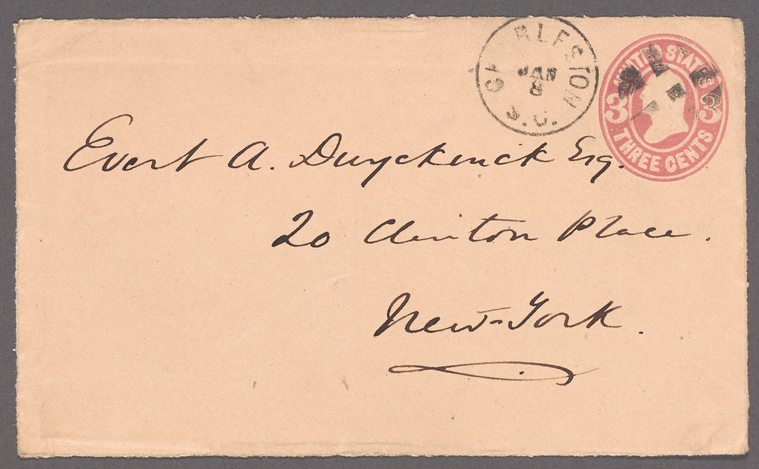 CHARLESTON
JAN
8
S.C.
UNITED STATES
3 3
THREE CENTS
Evert A. Duyckinck Esq.
20 Clinton Place.
New-York.